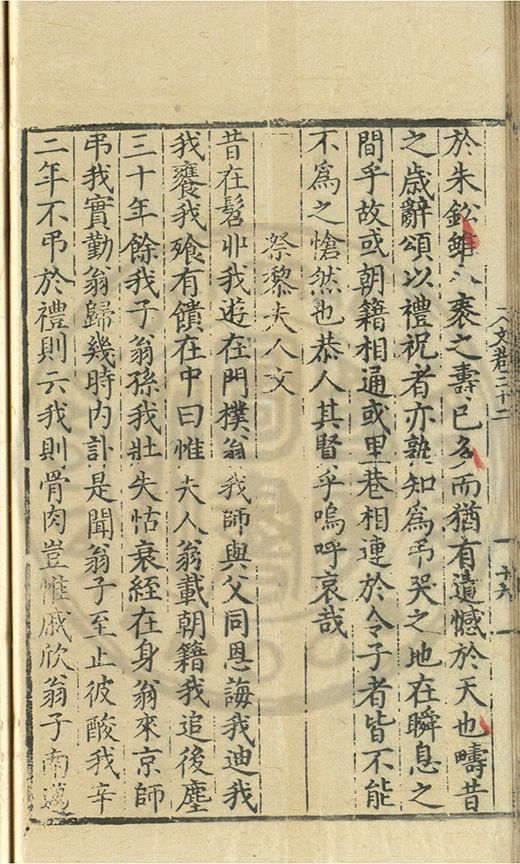 文卷二十二
於朱雖八袠之壽已多而猶有遺憾於天也疇昔
之歲辭頌以禮祝者亦孰知爲弔哭之地在瞬息之
間乎故或朝籍相通或里巷相連於令子者皆不能
不爲之愴然也恭人其賢乎嗚呼哀哉
祭黎夫人文
昔在髫丱我遊在門樸翁我師與父同恩誨我迪我
我饔我飱有饋在中曰惟夫人翁載朝籍我追後塵
三十年餘我子翁孫我壯失怙衰絰在身翁來京師
弔我實勤翁歸幾時內訃是聞翁子至止彼酸我辛
二年不弔於禮則云我則骨肉豈惟戚欣翁子南邁